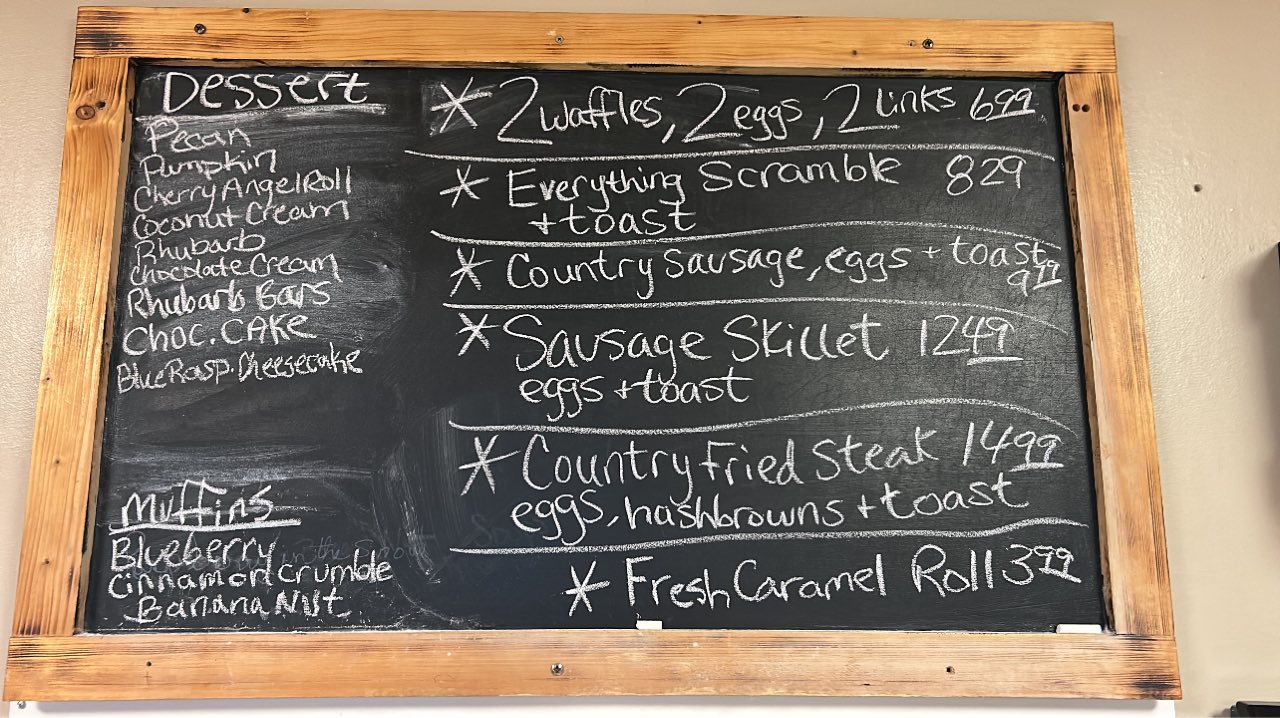 Dessert
Pecan
Pumpkin
Cherry Angel Roll
Coconut Cream
Rhubarb
Chocolate Cream
Rhubarb Bars
Choc. Cake
Blue Rasp. Cheesecake
Muffins
Blueberry
Cinnamon Crumble
Banana Nut
* 2 waffles, 2 eggs, 2 Links 699
* Everything Scramble 829
+ toast
* Country Sausage, eggs + toast
999
* Sausage Skillet 1249
eggs + toast
* Country Fried Steak 1499
eggs, hashbrowns + toast
* Fresh Caramel Roll 399